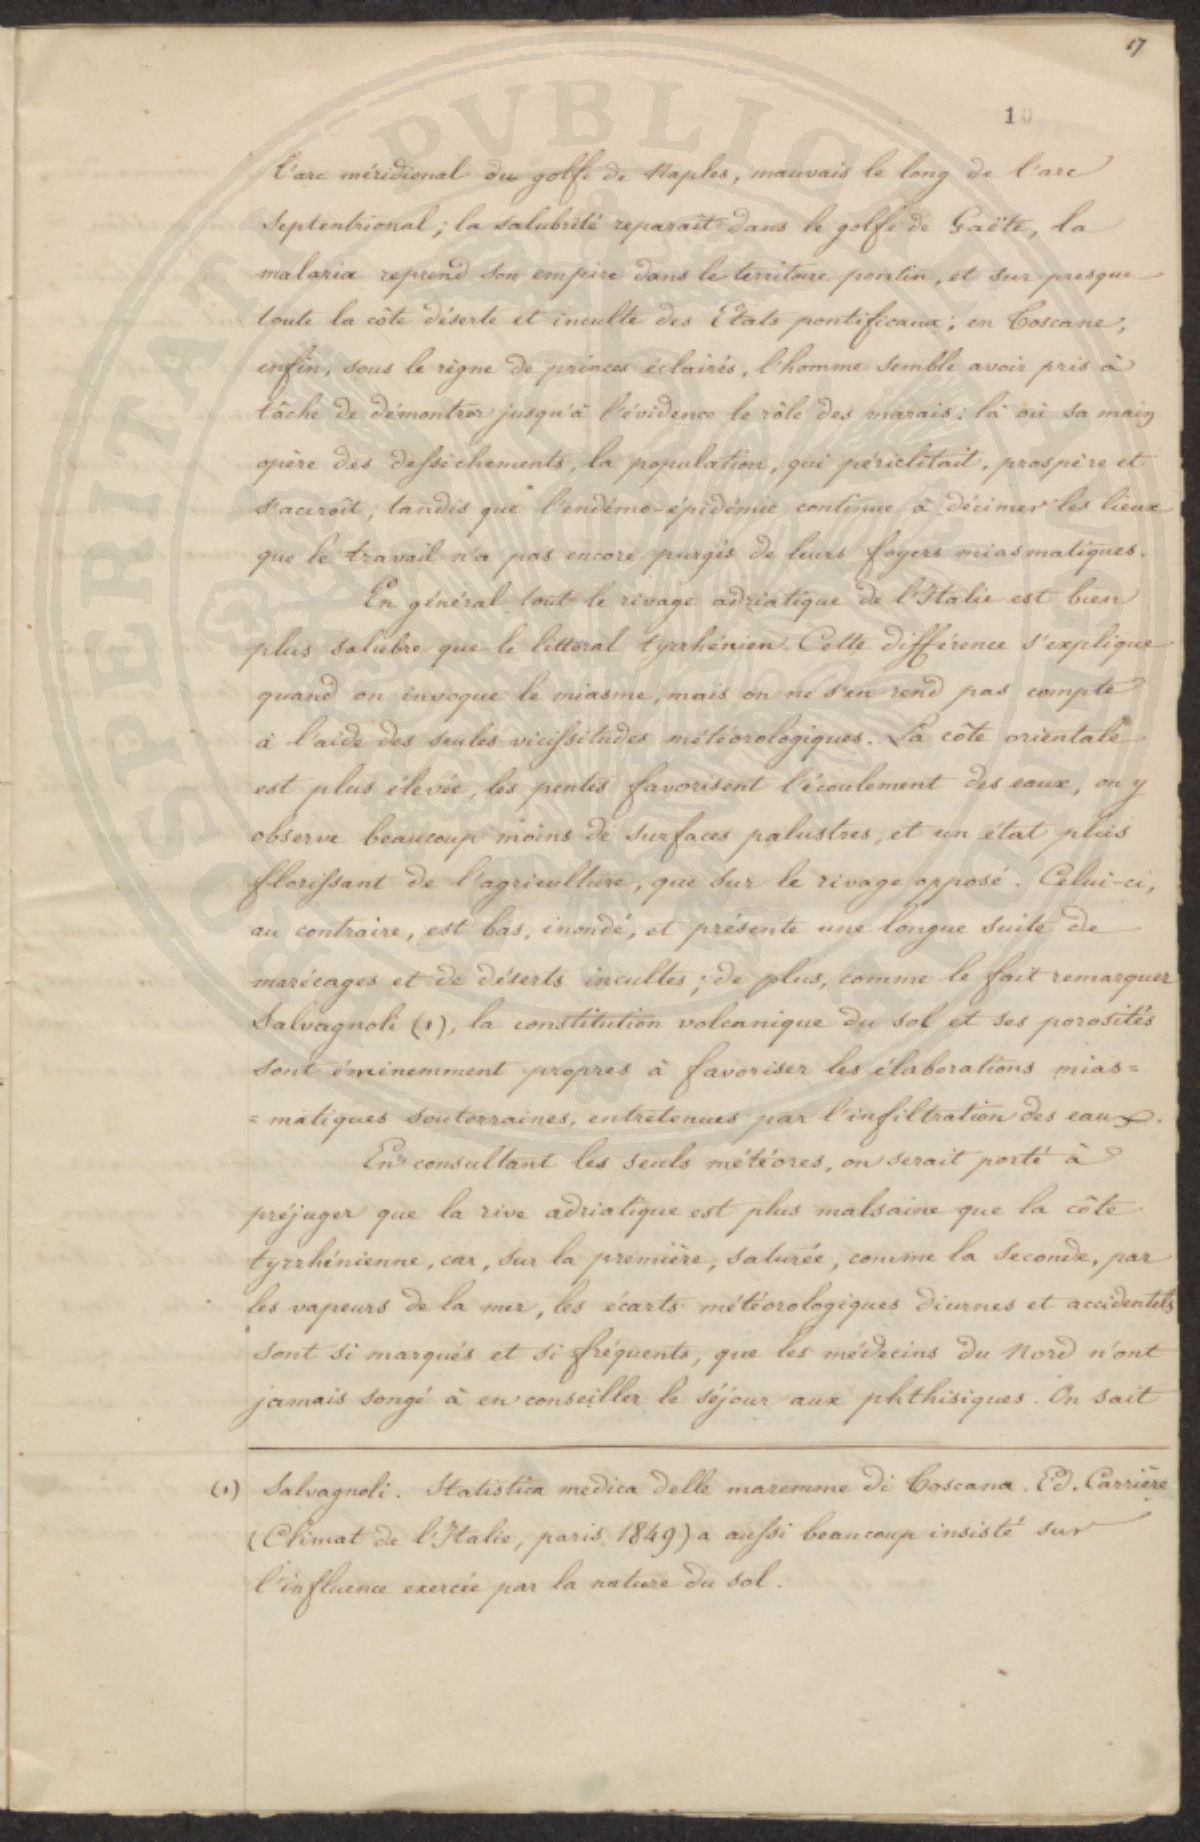 17
10
l'arc méridional du golfe de Naples, mauvais le long de l'arc
septentrional; la salubrité reparaît dans le golfe de Gaëte, la
malaria reprend son empire dans le territoire pontin, et sur presque
toute la côte déserte et inculte des Etats pontificaux; en Toscane,
enfin, sous le règne de princes éclairés, l'homme semble avoir pris à
tâche de démontrer jusqu'à l'évidence le rôle des marais: là où sa main
opère des dessèchements, la population, qui périclitait, prospère et
s'accroît, tandis que l'endémo-épidémie continue à décimer les lieux
que le travail n'a pas encore purgés de leurs foyers miasmatiques.
En général tout le rivage adriatique de l'Italie est bien
plus salubre que le littoral tyrrhénien. Cette différence s'explique
quand on invoque le miasme, mais on ne s'en rend pas compte
à l'aide des seules vicissitudes météorologiques. La côte orientale
est plus élevée, les pentes favorisent l'écoulement des eaux, on y
observe beaucoup moins de surfaces palustres, et un état plus
florissant de l'agriculture, que sur le rivage opposé. Celui-ci,
au contraire, est bas, inondé, et présente une longue suite de
marécages et de déserts incultes; de plus, comme le fait remarquer
Salvagnoli (1), la constitution volcanique du sol et ses porosités
sont éminemment propres à favoriser les élaborations mias=
=matiques souterraines, entretenues par l'infiltration des eaux.
En consultant les seuls météores, on serait porté à
préjuger que la rive adriatique est plus malsaine que la côte
tyrrhénienne, car, sur la première, saturée, comme la seconde, par
les vapeurs de la mer, les écarts météorologiques diurnes et accidentels
sont si marqués et si fréquents, que les médecins du Nord n'ont
jamais songé à en conseiller le séjour aux phthisiques. On sait
(1) Salvagnoli. Statistica medica delle maremme di Toscana. Ed. Carrière
(Climat de l'Italie, paris 1849) a aussi beaucoup insisté sur
l'influence exercée par la nature du sol.